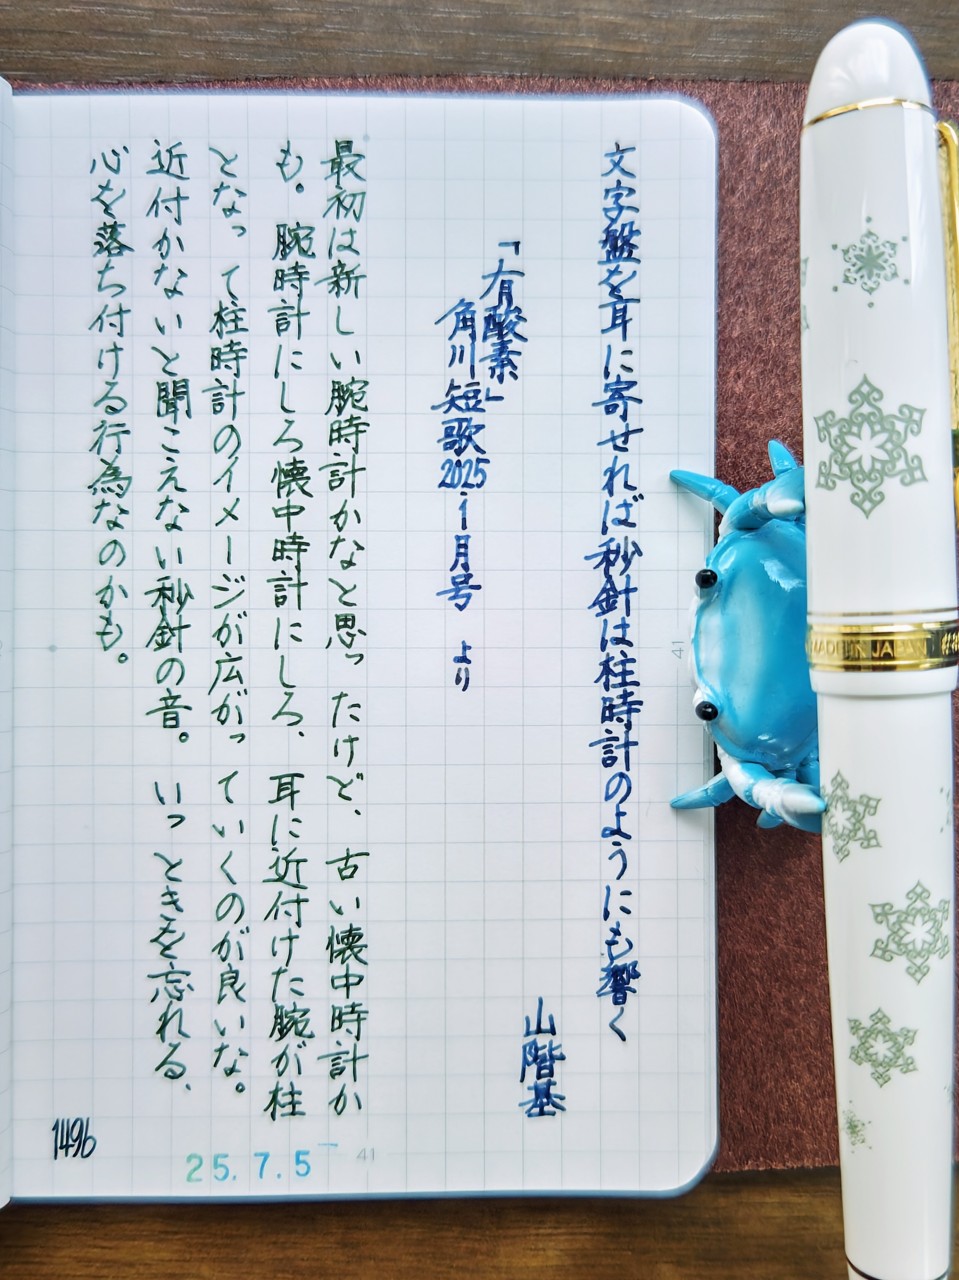 文字盤を耳に寄せれば秒針は柱時計のようにも響く
山階基
「有酸素」
角川短歌2025.1月号 より
最初は新しい腕時計かなと思ったけど、古い懐中時計か
も。腕時計にしろ懐中時計にしろ、耳に近付けた腕が柱
となって柱時計のイメージが広がっていくのが良いな。
近付かないと聞こえない秒針の音。いっときを忘れる、
心を落ち付ける行為なのかも。
1496
25.7.5
41
41
MADE IN JAPAN